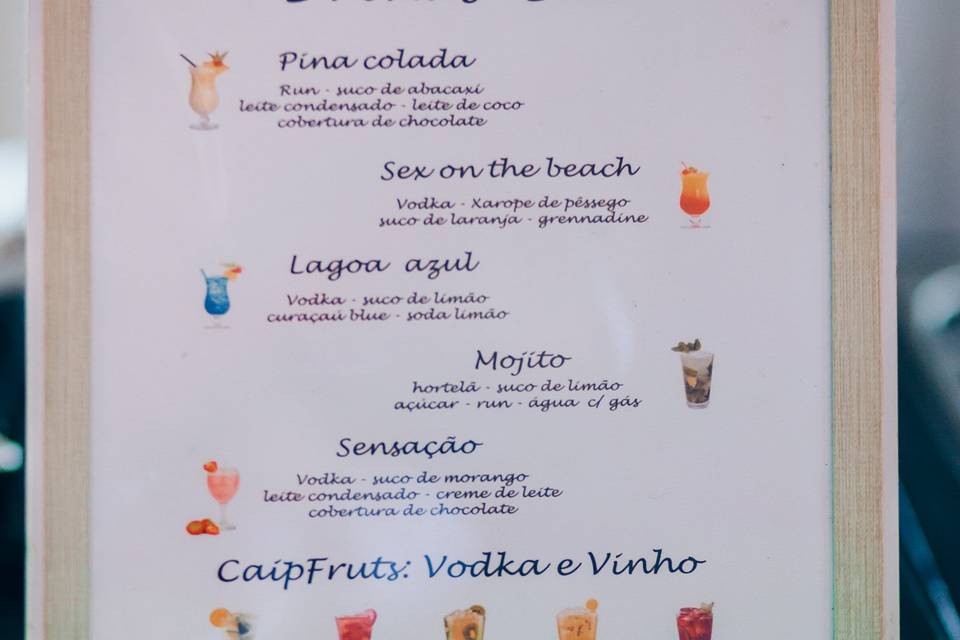 Pina colada
Run - suco de abacaxi
leite condensado - leite de coco
cobertura de chocolate
Sex on the beach
Vodka - Xarope de pêssego
suco de laranja - grennadine
Lagoa azul
Vodka - suco de limão
curaçaú blue - soda limão
Mojito
hortelã - suco de limão
açúcar - run - água c/ gás
Sensação
Vodka - suco de morango
leite condensado - creme de leite
cobertura de chocolate
CaipFruts: Vodka e Vinho